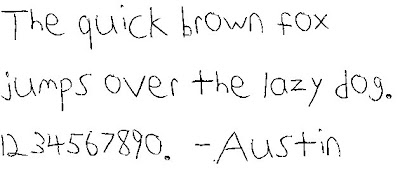 The quick brown fox
jumps over the lazy dog.
1234567890. -Austin